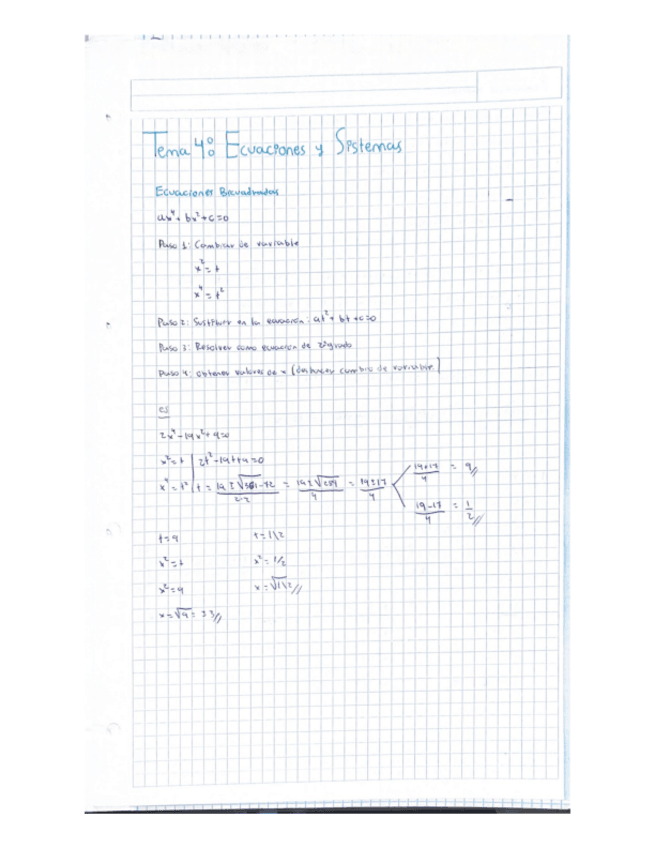 Tema 4: Ecuaciones y Sistemas
Ecuaciones Bicuadradas
ax⁴ + bx² + c = 0
Paso 1: Cambiar de variable
x² = t
x⁴ = t²
Paso 2: Sustituir en la ecuación: at² + bt + c = 0
Paso 3: Resolver como ecuación de 2º grado
Paso 4: obtener valores de x (deshacer cambio de variable)
2x⁴ - 19x² + 9 = 0
x² = t | 2t² - 19t + 9 = 0
x⁴ = t² | t = (19 ± √(361 - 72))/(2·2) = (19 ± √289)/4 = (19 ± 17)/4
(19+17)/4 = 9//
(19-17)/4 = 1/2//
t = 9 t = 1/2
x² = t x² = 1/2
x² = 9 x = √1/2//
x = √9 = ±3//